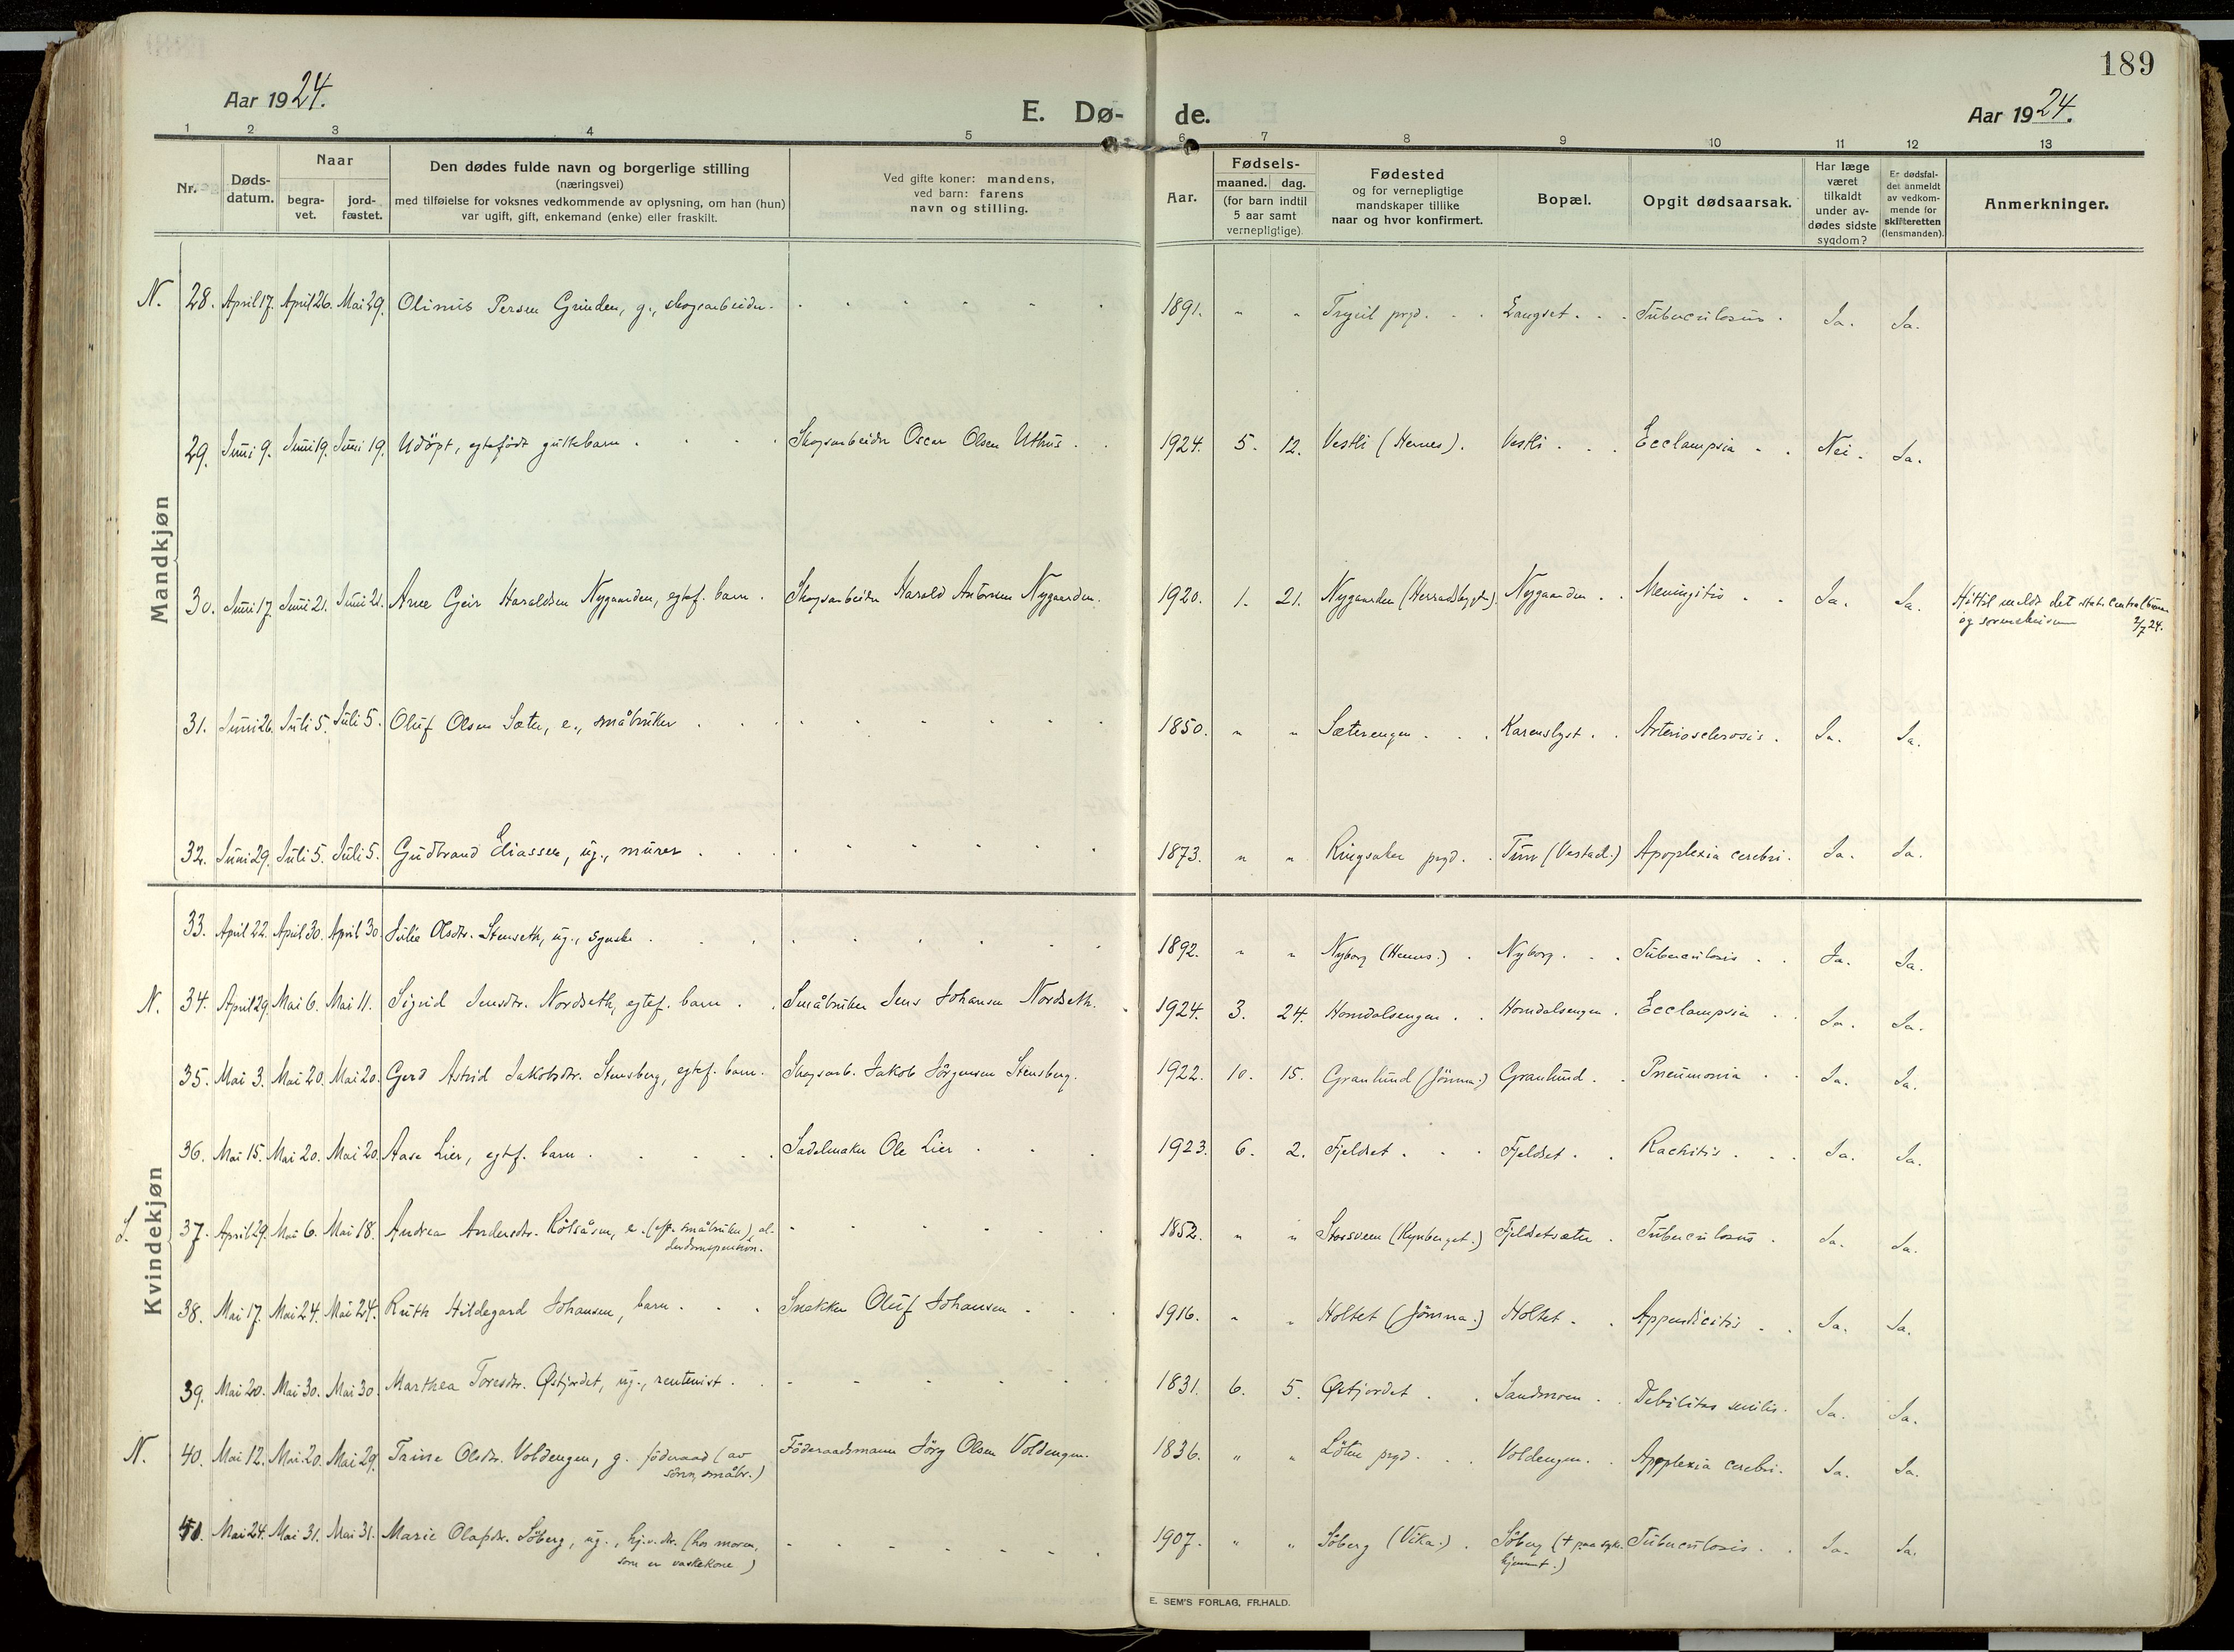 189
Aar 1924.
E. Dø-
de.
Aar 1924.
1 2 3 4 5 6 7 8 9 10 11 12 13
Nr.
Døds-
datum.
Naar
begra-
vet.
jord-
fæstet.
Den dødes fulde navn og borgerlige stilling
(næringsvei)
med tilføielse for voksnes vedkommende av oplysning, om han (hun)
var ugift, gift, enkemand (enke) eller fraskilt.
Ved gifte koner: mandens,
ved barn: farens
navn og stilling.
Aar.
Fødsels-
maaned. dag.
(for barn indtil
5 aar samt
vernepligtige).
Fødested
og for vernepligtige
mandskaper tillike
naar og hvor konfirmert.
Bopæl.
Opgit dødsaarsak.
Har læge
været
tilkaldt
under av-
dødes sidste
sygdom?
Er dødsfal-
det anmeldt
av vedkom-
mende for
skifteretten
(lensmanden).
Anmerkninger.
Mandkjøn
N. 28. April 17. April 26. Mai 29. Olinus Persen Grinden, g., skogsarbeider. 1891. " " Trysil prgd. Langset. Tuberculosis. Ja. Ja.
29. Juni 9. Juni 19. Juni 19. Udöpt, egtefödt guttebarn. Skogsarbeider Oscar Olsen Uthus. 1924. 5. 12. Vestli (Hernes). Vestli. Ecclampsia. Nei. Ja.
30. Juni 17. Juni 21. Juni 21. Arne Geir Haraldsen Nygaarden, egtef. barn. Skogsarbeider Harald Antonsen Nygaarden. 1920. 1. 21. Nygaarden (Herradsbygd.) Nygaarden. Meningitis. Ja. Ja. meldt det stat. Central
og sorenskriveren 2/7 24.
31. Juni 26. Juli 5. Juli 5. Oluf Olsen Sæter, e., småbruker. 1850. " " Sæterengen. Karenslyst. Arteriosclerosis. Ja. Ja.
32. Juni 29. Juli 5. Juli 5. Gudbrand Eliassen, ug., murer. 1873. " " Ringsaker prgd. (Vestad.) Apoplexia cerebri. Ja. Ja.
Kvindekjøn
33. April 22. April 30. April 30. Julie Olsdtr. Stenseth, ug., syerske. 1892. " " Nyborg (Hernes.) Nyborg. Tuberculosis. Ja. Ja.
N. 34. April 29. Mai 6. Mai 11. Sigrid Jensdtr. Nordseth, egtef. barn. Småbruker Jens Johansen Nordseth. 1924. 3. 24. Homdalsengen. Homdalsengen. Ecclampsia. Ja. Ja.
35. Mai 3. Mai 20. Mai 20. Gerd Astrid Jakobsdtr. Stensberg, egtef. barn. Skogsarb. Jakob Jörgensen Stensberg. 1922. 10. 15. Granlund (Jömna.) Granlund. Pneumonia. Ja. Ja.
36. Mai 15. Mai 20. Mai 20. Aase Lier, egtf. barn. Sadelmaker Ole Lier. 1923. 6. 2. Fjeldset. Fjeldset. Rachitis. Ja. Ja.
S. 37. April 29. Mai 6. Mai 18. Andrea Andersdtr. Kölsåsen, e. (eft. småbruker), al-
derdomspension. 1852. " " Storsveen (Kynberget.) Fjeldsetsæter. Tuberculosis. Ja. Ja.
38. Mai 17. Mai 24. Mai 24. Ruth Hildegard Johansen, barn. Snekker Oluf Johansen. 1916. " " Holtet (Jömna.) Holtet. Appendicitis. Ja. Ja.
39. Mai 20. Mai 30. Mai 30. Marthea Toresdtr. Østjordet, ug., rentenist. 1831. 6. 5. Østjordet. Sandmoen. Debilitas senilis. Ja. Ja.
N. 40. Mai 12. Mai 20. Mai 29. Trine Olsdtr. Voldengen, g. föderaad (av
sönn, småbr.) Föderaadsmann Jörg Olsen Voldengen. 1836. " " Löten prgd. Voldengen. Apoplexia cerebri. Ja. Ja.
41. Mai 24. Mai 31. Mai 31. Marie Olafsdtr. Söberg, ug., hj.v. dtr. (hos moren,
som er vaskekone) 1907. " " Söberg (Vika.) Söberg († paa syke-
hjemmet.) Tuberculosis. Ja. Ja.
E. SEM'S FORLAG, FR.HALD.